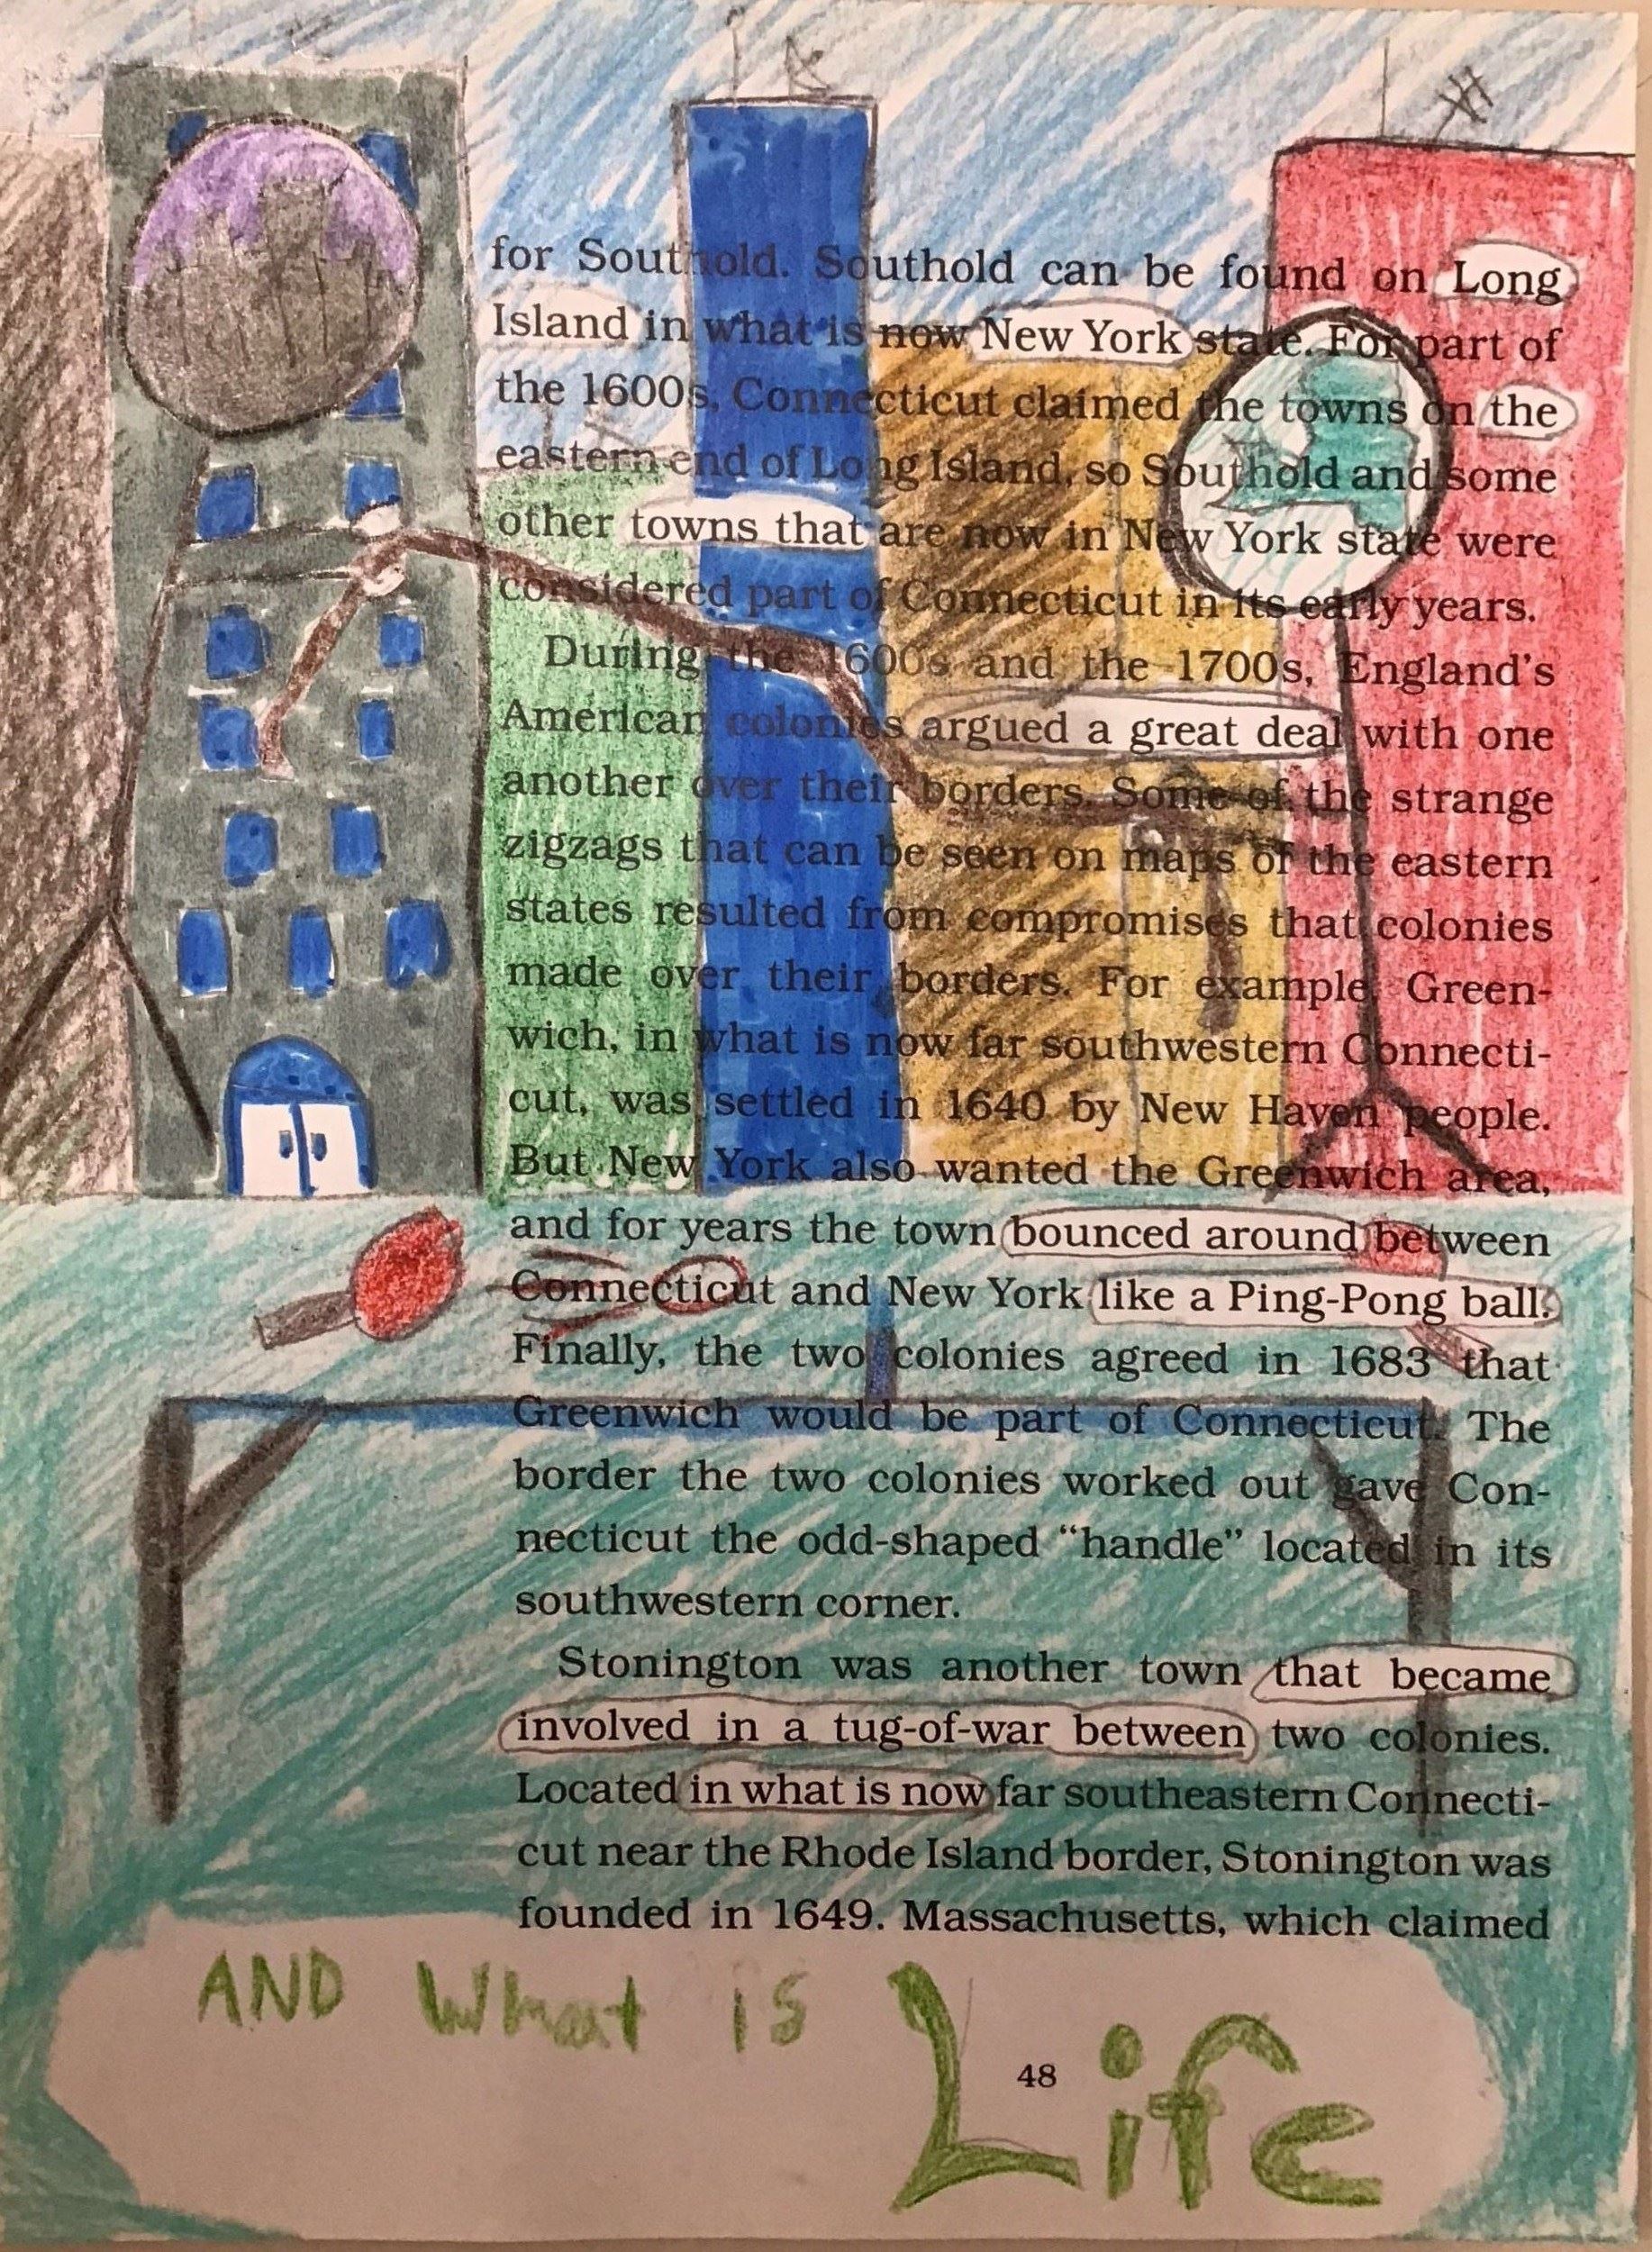 for Southold. Southold can be found on Long
Island in what is now New York state. For part of
the 1600s, Connecticut claimed the towns on the
eastern end of Long Island, so Southold and some
other towns that are now in New York state were
considered part of Connecticut in its early years.
During the 1600s and the 1700s, England's
American colonies argued a great deal with one
another over their borders. Some of the strange
zigzags that can be seen on maps of the eastern
states resulted from compromises that colonies
made over their borders. For example, Green-
wich, in what is now far southwestern Connecti-
cut, was settled in 1640 by New Haven people.
But New York also wanted the Greenwich area,
and for years the town bounced around between
Connecticut and New York like a Ping-Pong ball.
Finally, the two colonies agreed in 1683 that
Greenwich would be part of Connecticut. The
border the two colonies worked out gave Con-
necticut the odd-shaped “handle” located in its
southwestern corner.
Stonington was another town that became
involved in a tug-of-war between two colonies.
Located in what is now far southeastern Connecti-
cut near the Rhode Island border, Stonington was
founded in 1649. Massachusetts, which claimed
AND What is Life
48